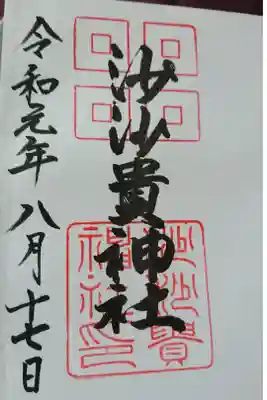 沙沙貴神社
沙沙貴
神社印
令和元年八月十七日